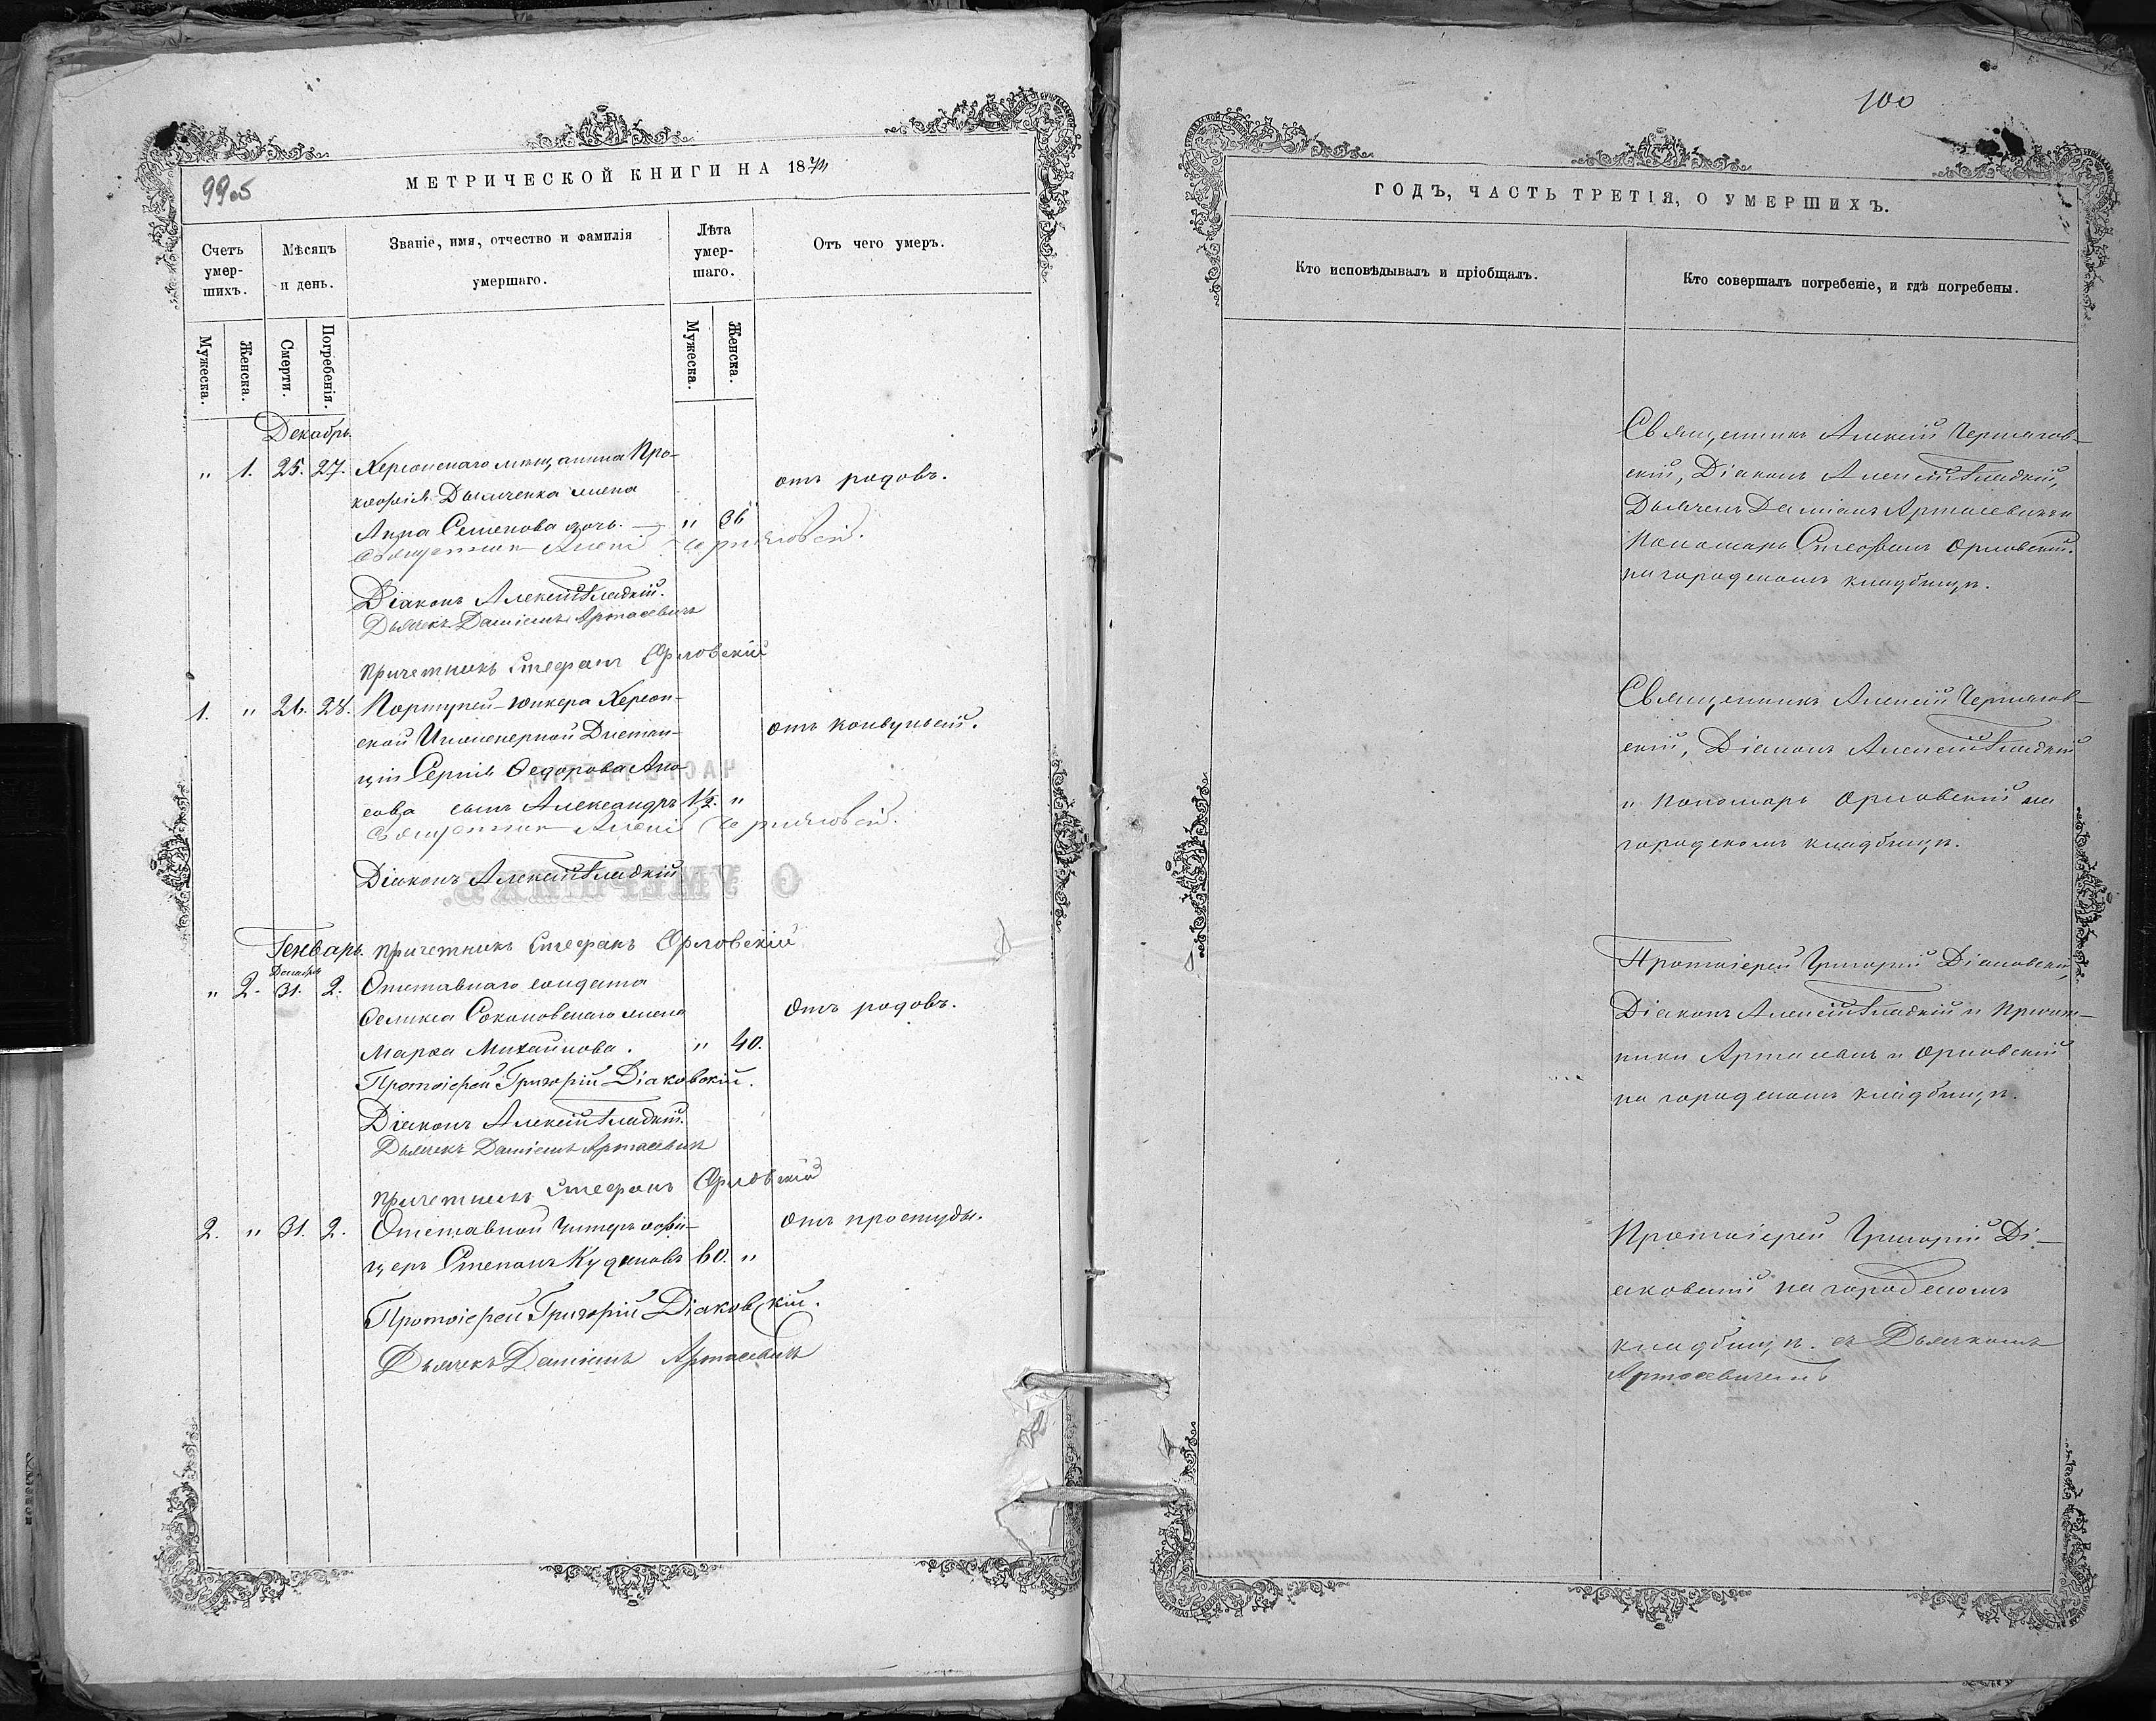 99об
МЕТРИЧЕСКОЙ КНИГИ НА 18
Счетъ умер-шихъ.
Мѣсяцъ и день.
Званіе, имя, отчество и фамилія
умершаго.
Лѣта умер-шаго.
Отъ чего умеръ.
Мужеска.
Женска.
Смерти.
Погребенія.
Мужеска.
Женска.
Декабрь.
" 1. 25. 27. Херсонскаго мѣщанина Про-
кофія Дьяченка жена
отъ родовъ.
Анна Семенова дочь. — " 36
Священникъ Алексій
Діаконъ Алексій Гладкій.
Дьячекъ Даміанъ Артасевичъ
Причетникъ Стефанъ Орловскій
1. " 26. 28. Портупей-юнкера Херсон-
ской Инженерной Дистан-
отъ конвульсій.
ціи Сергія Ѳедорова
сова сынъ Александръ 1½. "
Священникъ Алексій
Діаконъ Алексій Гладкій
Генварь.
Причетникъ Стефанъ Орловскій
Декабрь
" 2. 31. 2. Отставнаго солдата
Феликса Соколовскаго жена
Отъ родовъ.
Марѳа Михайлова. " 40.
Протоіерей Григорій Діаковскій.
Діаконъ Алексій Гладкій.
Дьячекъ Даміанъ Артасевичъ
Причетникъ Стефанъ Орловскій
2. " 31. 2. Отставной Унтеръ офи-
Отъ простуды.
церъ Степанъ 60. "
Протоіерей Григорій Діаковскій.
Дьячекъ Даміанъ Артасевичъ
100
ГОДЪ, ЧАСТЬ ТРЕТІЯ, О УМЕРШИХЪ.
Кто исповѣдывалъ и пріобщалъ.
Кто совершалъ погребеніе, и гдѣ погребены.
Священникъ Алексій
скій, Діаконъ Алексій Гладкій,
Дьячекъ Даміанъ Артасевичъ и
Пономарь Стефанъ Орловскій.
на городскомъ кладбищѣ.
Священникъ Алексій
скій, Діаконъ Алексій Гладкій
и Пономарь Орловскій на
городскомъ кладбищѣ.
Протоіерей Григорій Діаковскій,
Діаконъ Алексій Гладкій и Причет-
ники и Орловскій
на городскомъ кладбищѣ.
Протоіерей Григорій Ді-
аковскій на городскомъ
кладбищѣ. съ Дьячкомъ
Артасевичемъ